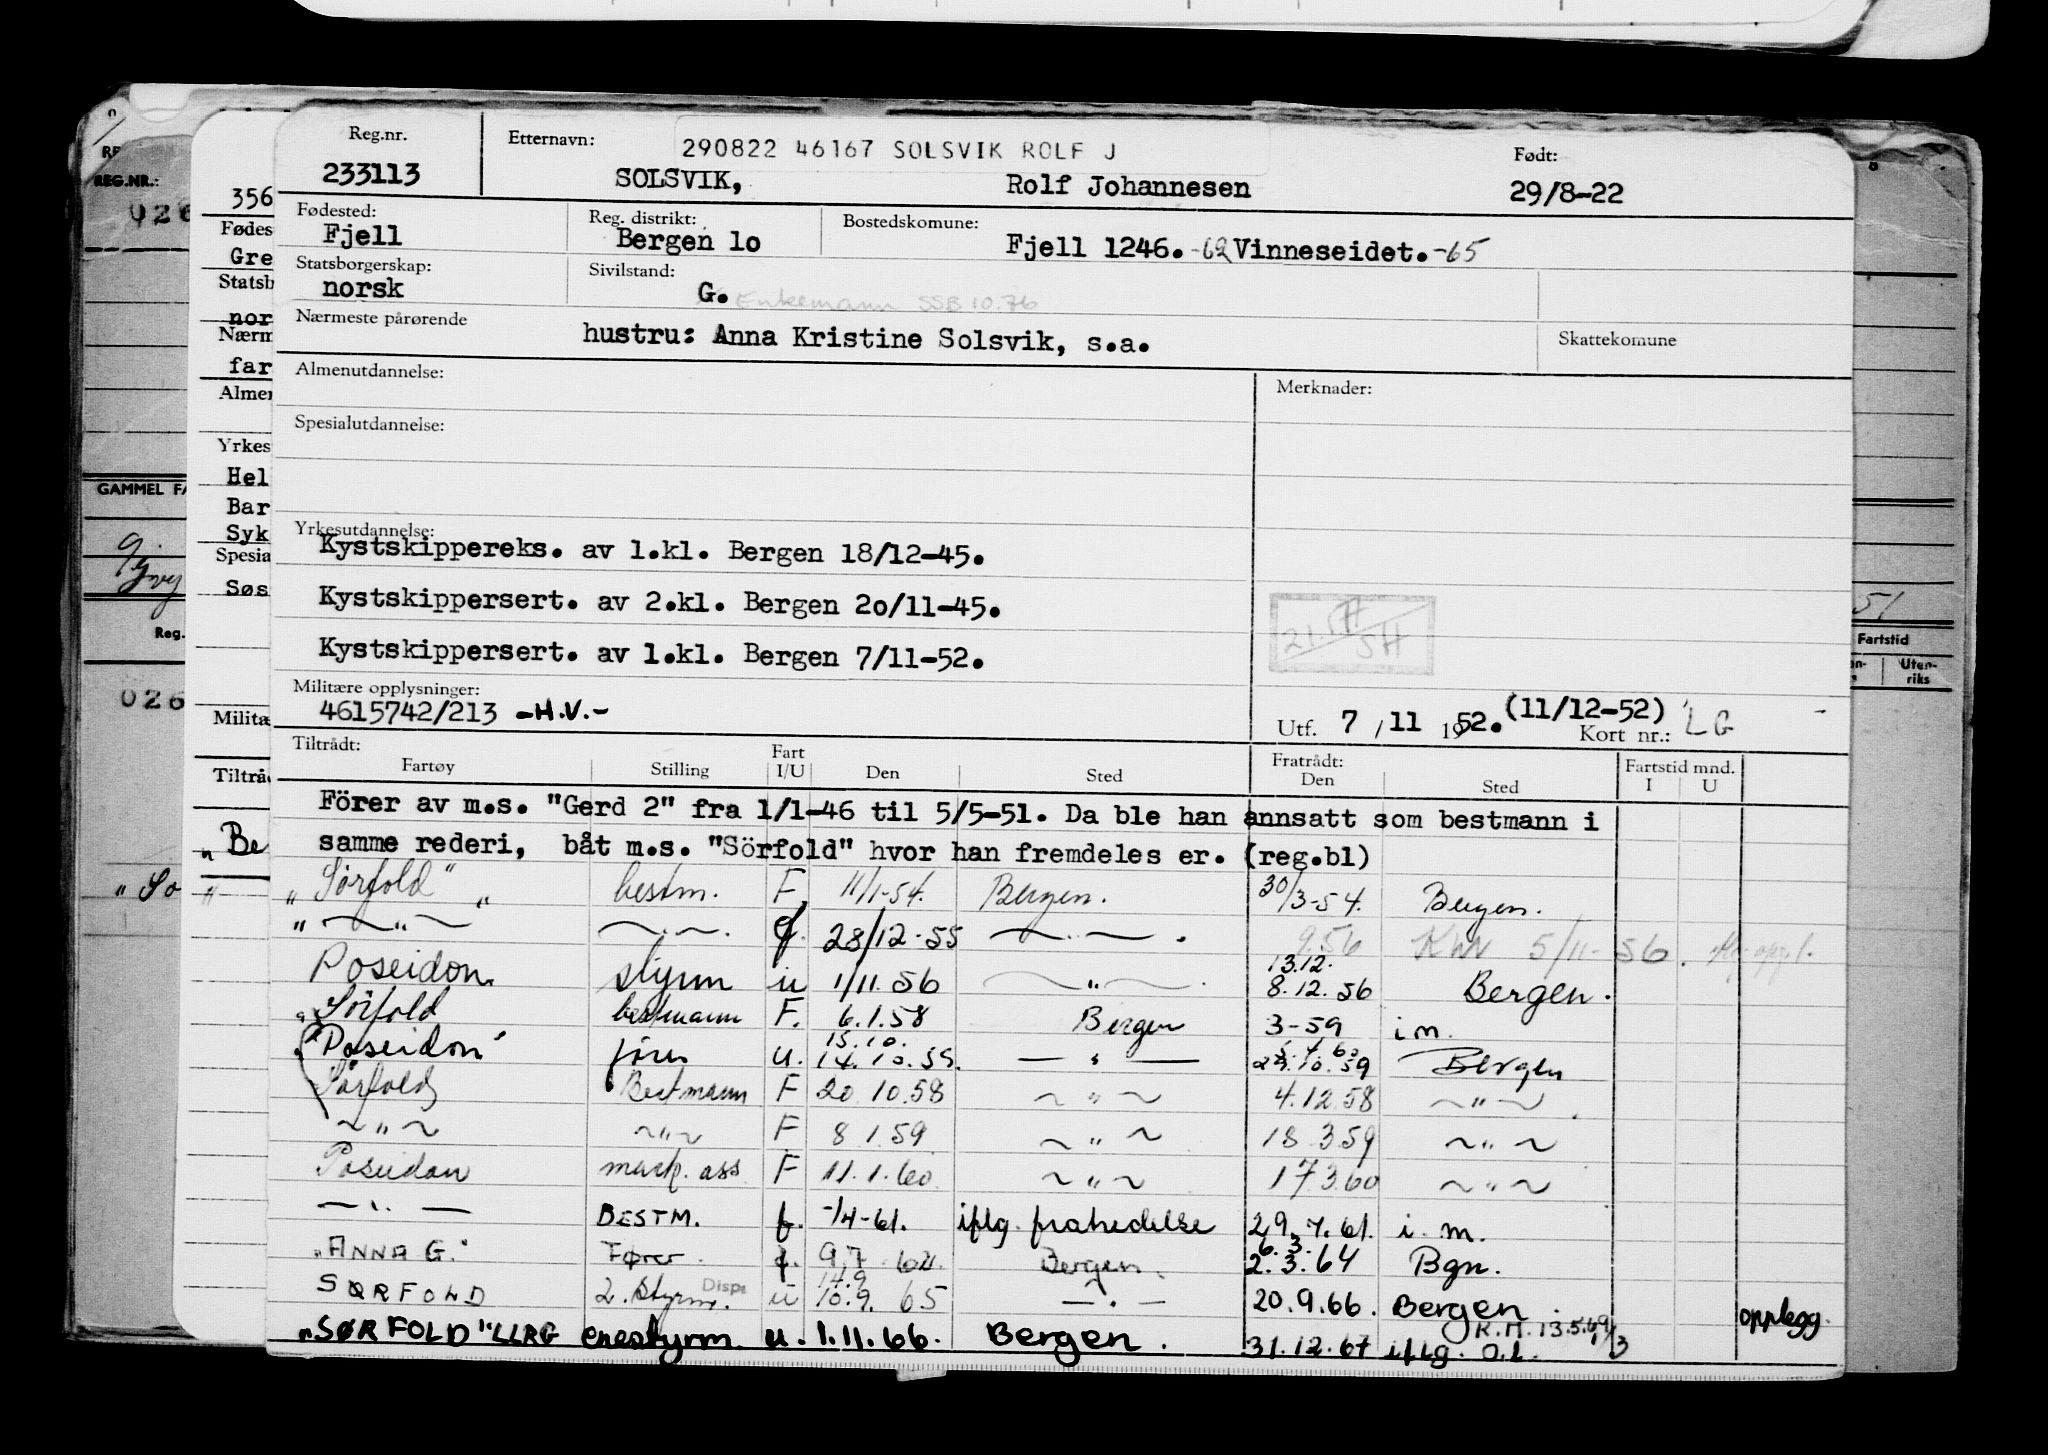 Reg.nr. Etternavn: 290822 46167 SOLSVIK ROLF J Født:
233113 SOLSVIK, Rolf Johannesen 29/8-22
Fødested: Reg. distrikt: Bostedskomune:
Fjell Bergen lo Fjell 1246. -62 Vinneseidet. -65
Statsborgerskap: Sivilstand:
norsk G. Enkemann SSB 10.76
Nærmeste pårørende hustru: Anna Kristine Solsvik, s.a. Skattekomune
Almenutdannelse: Merknader:
Spesialutdannelse:
Yrkesutdannelse:
Kystskippereks. av 1.kl. Bergen 18/12-45.
Kystskippersert. av 2.kl. Bergen 2o/11-45.
Kystskippersert. av 1.kl. Bergen 7/11-52.
Militære opplysninger:
4615742/213 -H.V.-
Utf. 7/11 1952. (11/12-52) Kort nr.: LG
Tiltrådt: Fratrådt:
Fartøy Stilling Fart I/U Den Sted Den Sted Fartstid mnd. I U
Förer av m.s. "Gerd 2" fra 1/1-46 til 5/5-51. Da ble han annsatt som bestmann i
samme rederi, båt m.s. "Sörfold" hvor han fremdeles er. (reg.bl)
"Sørfold" bestm. F 11/1-54. Bergen. 30/3-54. Bergen.
— " — — " — f. 28/12-55 — " — . 9.56 KW 5/11-56.
Poseidon styrm u 1/11.56 — " — 13.12. 8.12.56 Bergen.
"Sörfold bestmann F. 6.1.58 Bergen 3-59 i m.
"Poseidon" fører u. 15.10. 14.10.55. — " — 5.4.60 Bergen
Sørfold Bestmann F 20.10.58 ~ " ~ 4.12.58 ~ " ~
~ " ~ ~ " ~ F 8.1.59 ~ " ~ 18.3.59 ~ " ~
Poseidon mask. ass F 11.1.60 ~ " ~ 17.3.60 ~ " ~
— " — BESTM. f. -/4-61. iflg. frahedelse 29.7.61. i. m.
"ANNA G." Fører. f. 9.7 Bergen. 6.3. 2.3.64 Bgn.
SØRFOLD 2. Styrm. Disp. u 14.9 10.9.65 — " — 20.9.66. Bergen
"SØRFOLD" LLRG enestyrm. u. 1.11.66. Bergen. 31.12.67 iflg. o.l. R.M. 13.5.69 opplegg.
REG.NR.:
026
GAMMEL
Reg.
026
356
Fødes
Gre
Statsb
nor
Nærm
far
Almen
Yrkes
Hel
Bar
Syk
Spesia
Søs
Militæ
Tiltråd
"Be
"So
51
Fartstid
Uten-
riks